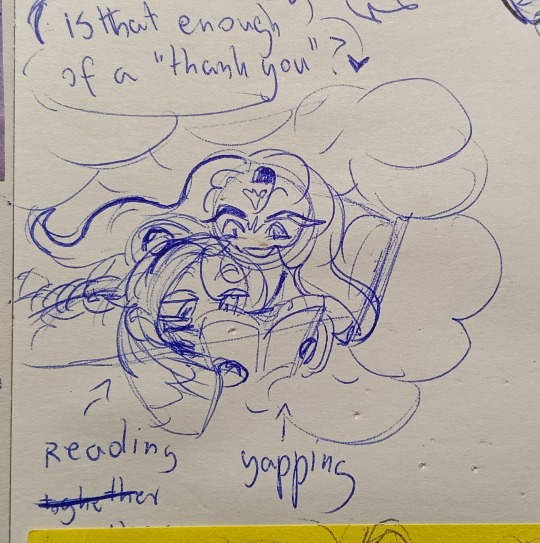 is that enough
of a "thank you"?
Reading
yapping
together